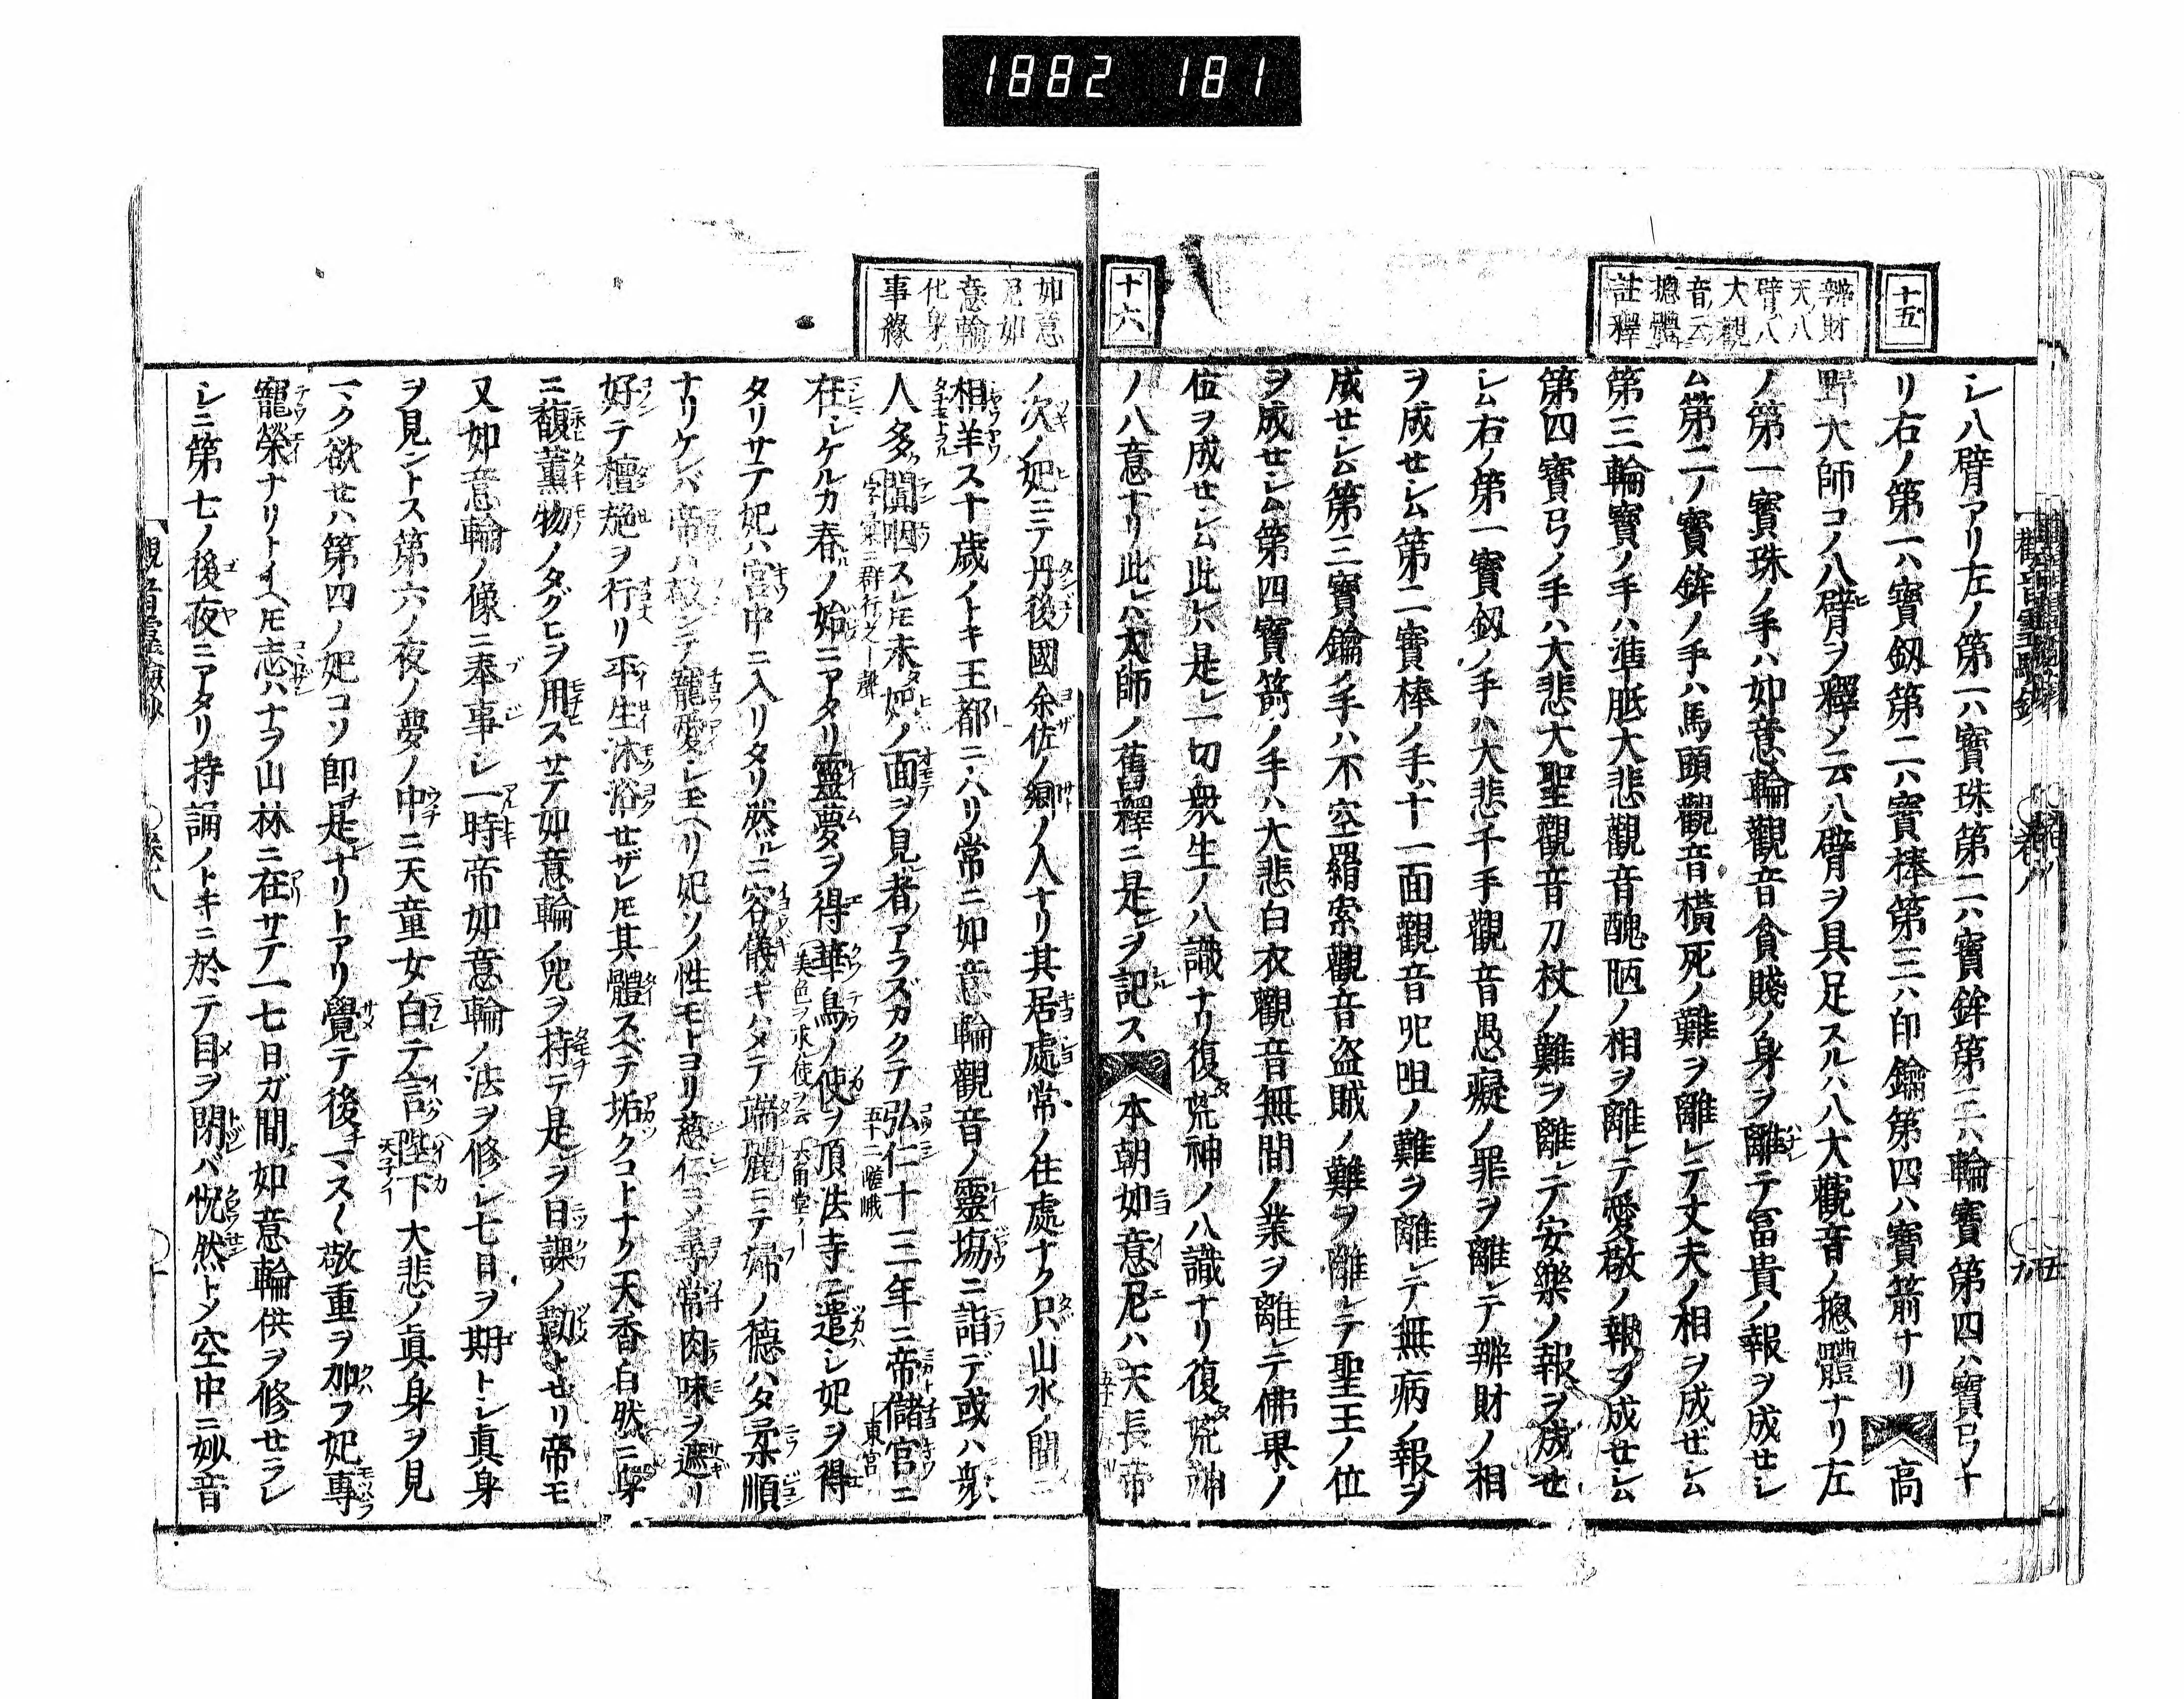 1882 181
十五
辨財
天ノ八
臂八
大觀
音云
摠體
註釋
シ八臂アリ左ノ第一ハ寶珠第二ハ寶鉾第三ハ輪寶第四ハ寶弓ナ
リ右ノ第一ハ寶釼第二ハ寳棒第三ハ印鑰第四ハ寶箭ナリ 高
野大師コノ八臂ヲ釋メ云八臂ヲ具足スルハ八大觀音ノ摠體ナリ左
ノ第一寶珠ノ手ハ如意輪觀音貪賤ノ身ヲ離テ冨貴ノ報ヲ成セシ
ム第二ノ寶鉾ノ手ハ馬頭觀音橫死ノ難ヲ離レテ丈夫ノ相ヲ成ゼシム
第三輪寶ノ手ハ準胝大悲觀音醜陋ノ相ヲ離レテ愛敬ノ報ヲ成セシム
第四寶弓ノ手ハ大悲大聖觀音刀杖ノ難ヲ離レテ安樂ノ報ヲ成セ
シム右ノ第一寶釼ノ手ハ大悲千手觀音愚癡ノ罪ヲ離レテ辨財ノ相
ヲ成セシム第二寶棒ノ手ハ十一面觀音呪咀ノ難ヲ離レテ無病ノ報ヲ
成セシム第三寶鑰ノ手ハ不空羂索觀音盗賊ノ難ヲ離レテ聖王ノ位
ヲ成セシム第四寶箭ノ手ハ大悲白衣觀音無間ノ業ヲ離レテ佛果ノ
位ヲ成セシム此レハ是レ一切衆生ノ八識ナリ復荒神ノ八識ナリ復荒神
ノ八意ナリ此レハ大師ノ舊釋ニ是ヲ記ス 本朝如意尼ハ天長帝
十六
如意
尼如
意輪
化身
事緣
ノ次ノ妃ニテ丹後國余佐ノ鄕ノ人ナリ其居處常ノ住處ナク只山水ノ間ニ
相羊ス十歳ノトキ王都ニハリ常ニ如意輪觀音ノ靈塲ニ詣デ或ハ衆
人多ク闐咽スレ𪜈未妃ノ面ヲ見者アラズガクテ弘仁十三年ニ帝儲宮ニ
在シケルカ春ノ始ニアタリ靈夢ヲ得華鳥ノ使ヲ頂法寺ニ遣シ妃ヲ得
タリサテ妃ハ宮中ニ入リタリ然ルニ容儀キハメテ端麗ニテ婦ノ德ハタ柔順
ナリケレバ帝ハ敬シテ寵愛シ玉ヘリ妃ソノ性モトヨリ慈仁ヨノ事常肉味ヲ遮リ
好テ檀施ヲ行リ平生沐浴セザレ𪜈其體スベテ垢クコトナク天香自然ニ身
ニ馥薰物ノタグヒヲ用スサテ如意輪ノ呪ヲ持テ是レヲ日課ノ勤トセリ帝モ
又如意輪ノ像ニ奉事シ一時帝如意輪ノ法ヲ修シ七日ヲ期トシ眞身
ヲ見ントス第六ノ夜ノ夢ノ中ニ天童女白テ言陛下大悲ノ眞身ヲ見
マク欲セハ第四ノ妃コソ即是ナリトアリ覺テ後マス〱敬重ヲ加フ妃專
寵榮ナリトイヘ𪜈志ハナヲ山林ニ在サテ一七日ガ間如意輪供ヲ修セラレ
シニ第七ノ後夜ニアタリ持誦ノトキニ於テ目ヲ閉バ怳然トメ空中ニ妙音